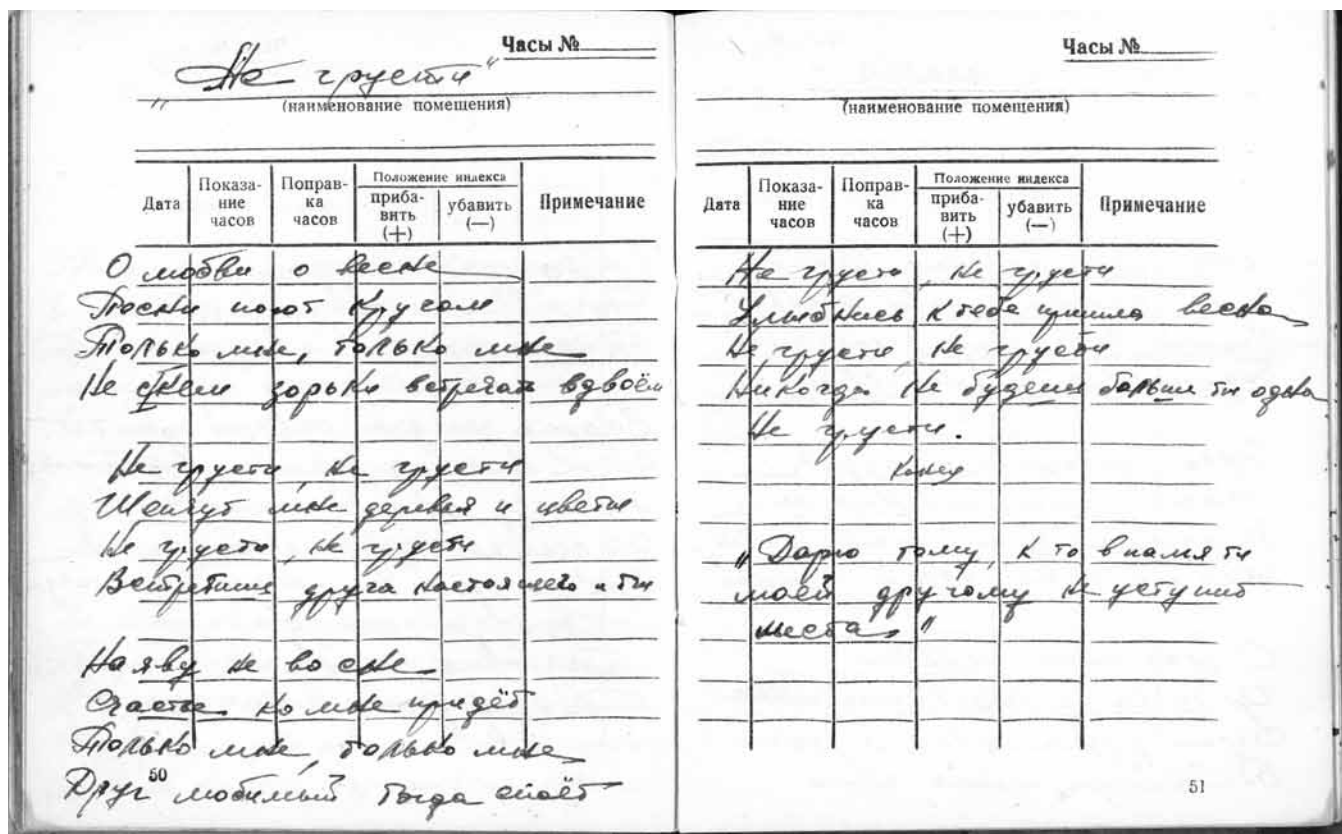 Часы №
„Не грусти“
(наименование помещения)
Дата
Показа-
ние
часов
Поправ-
ка
часов
Положение индекса
приба-
вить
(+)
убавить
(—)
Примечание
О любви о весне
Песни поют кругом
Только мне, только мне
Не с кем зорьки встречать вдвоём
Не грусти, не грусти
Шепчут мне деревья и цветы
Не грусти, не грусти
Встретишь друга настоящего и ты
Наяву не во сне
Счастье ко мне придёт
Только мне, только мне
Друг любимый тогда споёт
50
Часы №
(наименование помещения)
Дата
Показа-
ние
часов
Поправ-
ка
часов
Положение индекса
приба-
вить
(+)
убавить
(—)
Примечание
Не грусти, не грусти
Улыбнись к тебе пришла весна
Не грусти, не грусти
Никогда не будешь больше ты одна
Не грусти.
конец
„Дарю тому, кто в памяти
моей другому не уступит
места“
51